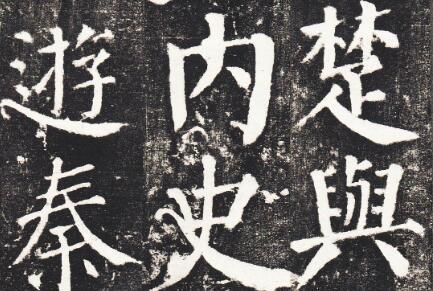 楚與
内史
遊秦